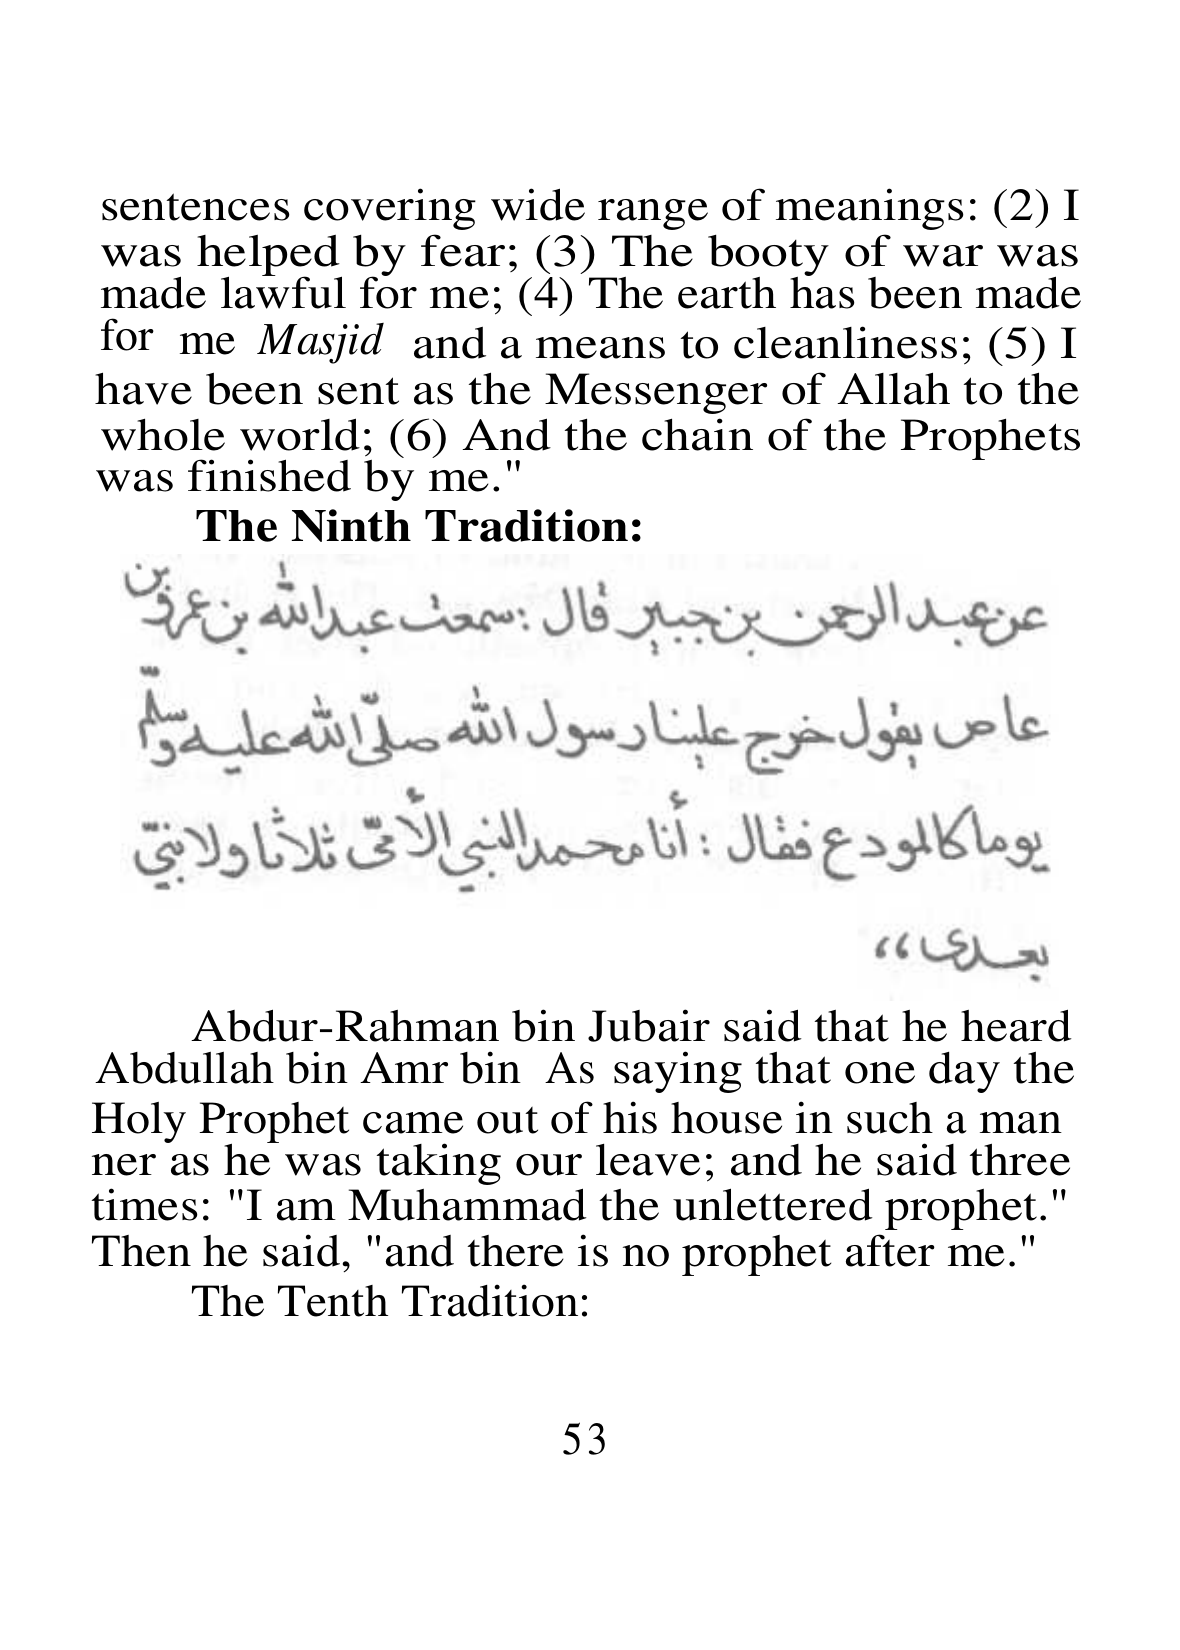 sentences covering wide range of meanings: (2) I
was helped by fear; (3) The booty of war was
made lawful for me; (4) The earth has been made
for me Masjid and a means to cleanliness; (5) I
have been sent as the Messenger of Allah to the
whole world; (6) And the chain of the Prophets
was finished by me."
The Ninth Tradition:
عن عبد الرحمن بن جبير قال : سمعت عبد الله بن عمرو بن
عاص يقول خرج علينا رسول الله صلّى الله عليه وسلّم
يوما كالمودع فقال : أنا محمد النبي الأمّى ثلاثا ولا نبيّ
بعدى ،،
Abdur-Rahman bin Jubair said that he heard
Abdullah bin Amr bin As saying that one day the
Holy Prophet came out of his house in such a man
ner as he was taking our leave; and he said three
times: "I am Muhammad the unlettered prophet."
Then he said, "and there is no prophet after me."
The Tenth Tradition:
53